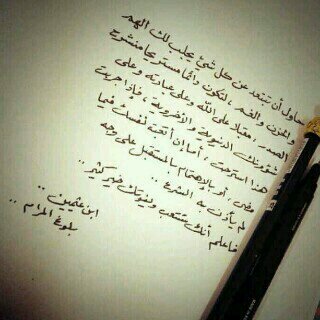 حاول أن تبتعد عن كل شيء يجلب لك الهم
والحزن والغم ، لتكون دائما مستريحا منشرح
الصدر ، مقبلا على الله وعلى عبادته وعلى
شؤونك الدنيوية والأخروية ، فإذا جربت
هذا استرحت ، أما إن أتعبت نفسك فيما
مضى، أو بالاهتمام بالمستقبل على وجه
لم يأذن به الشرع ..
فاعلم أنك ستتعب ويفوتك خير كثير ..
ابن عثيمين ..
بلوغ المرام ..